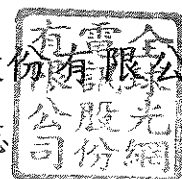 份有限公
全球光網
電訊股份
有限公司